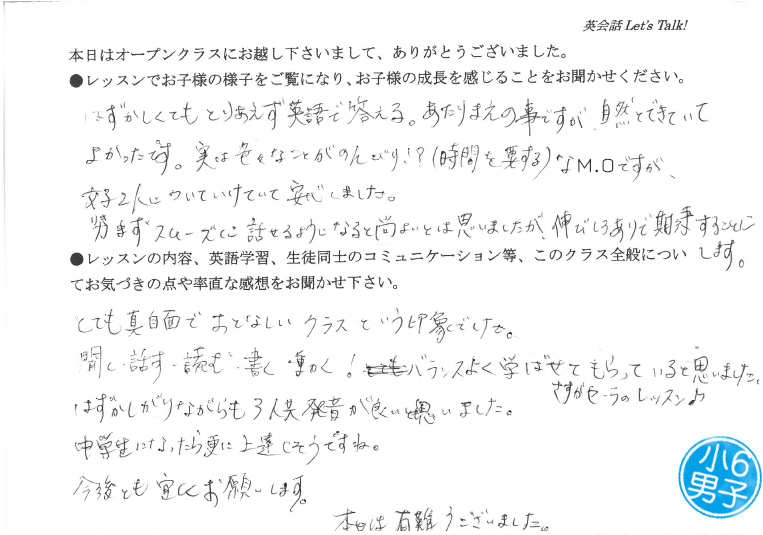 英会話 Let's Talk!
本日はオープンクラスにお越し下さいまして、ありがとうございました。
●レッスンでお子様の様子をご覧になり、お子様の成長を感じることをお聞かせください。
はずかしくても とりあえず 英語で 答える。あたりまえの事ですが 自然とできていて
よかったです。実は 色々なことがのんびり!?(時間を要する)なM.Oですが、
女子2人についていけていて 安心しました。
スムーズに 話せるようになると尚よいとは思いましたが 伸びしろありで 期待することに
します。
●レッスンの内容、英語学習、生徒同士のコミュニケーション等、このクラス全般につい
てお気づきの点や率直な感想をお聞かせ下さい。
とても真自面で おとなしい クラス という印象でした。
聞く・話す・読む・書く・動く!バランスよく 学ばせて もらっていると思いました。
さすがセーラのレッスン♪
はずかしがりながらも3人共発音が良いと思いました。
中学生になったら更に上達しそうですね。
今後とも宜しくお願いします。
本日は有難うございました。
小6
男子